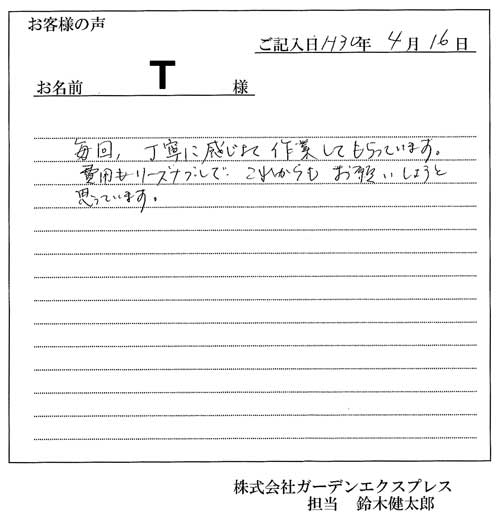 お客様の声
ご記入日 H30年 4月 16日
お名前 T 様
毎回、丁寧に感じよく作業してもらっています。
費用もリーズナブルで これからも お願いしようと
思っています。
株式会社ガーデンエクスプレス
担当 鈴木健太郎